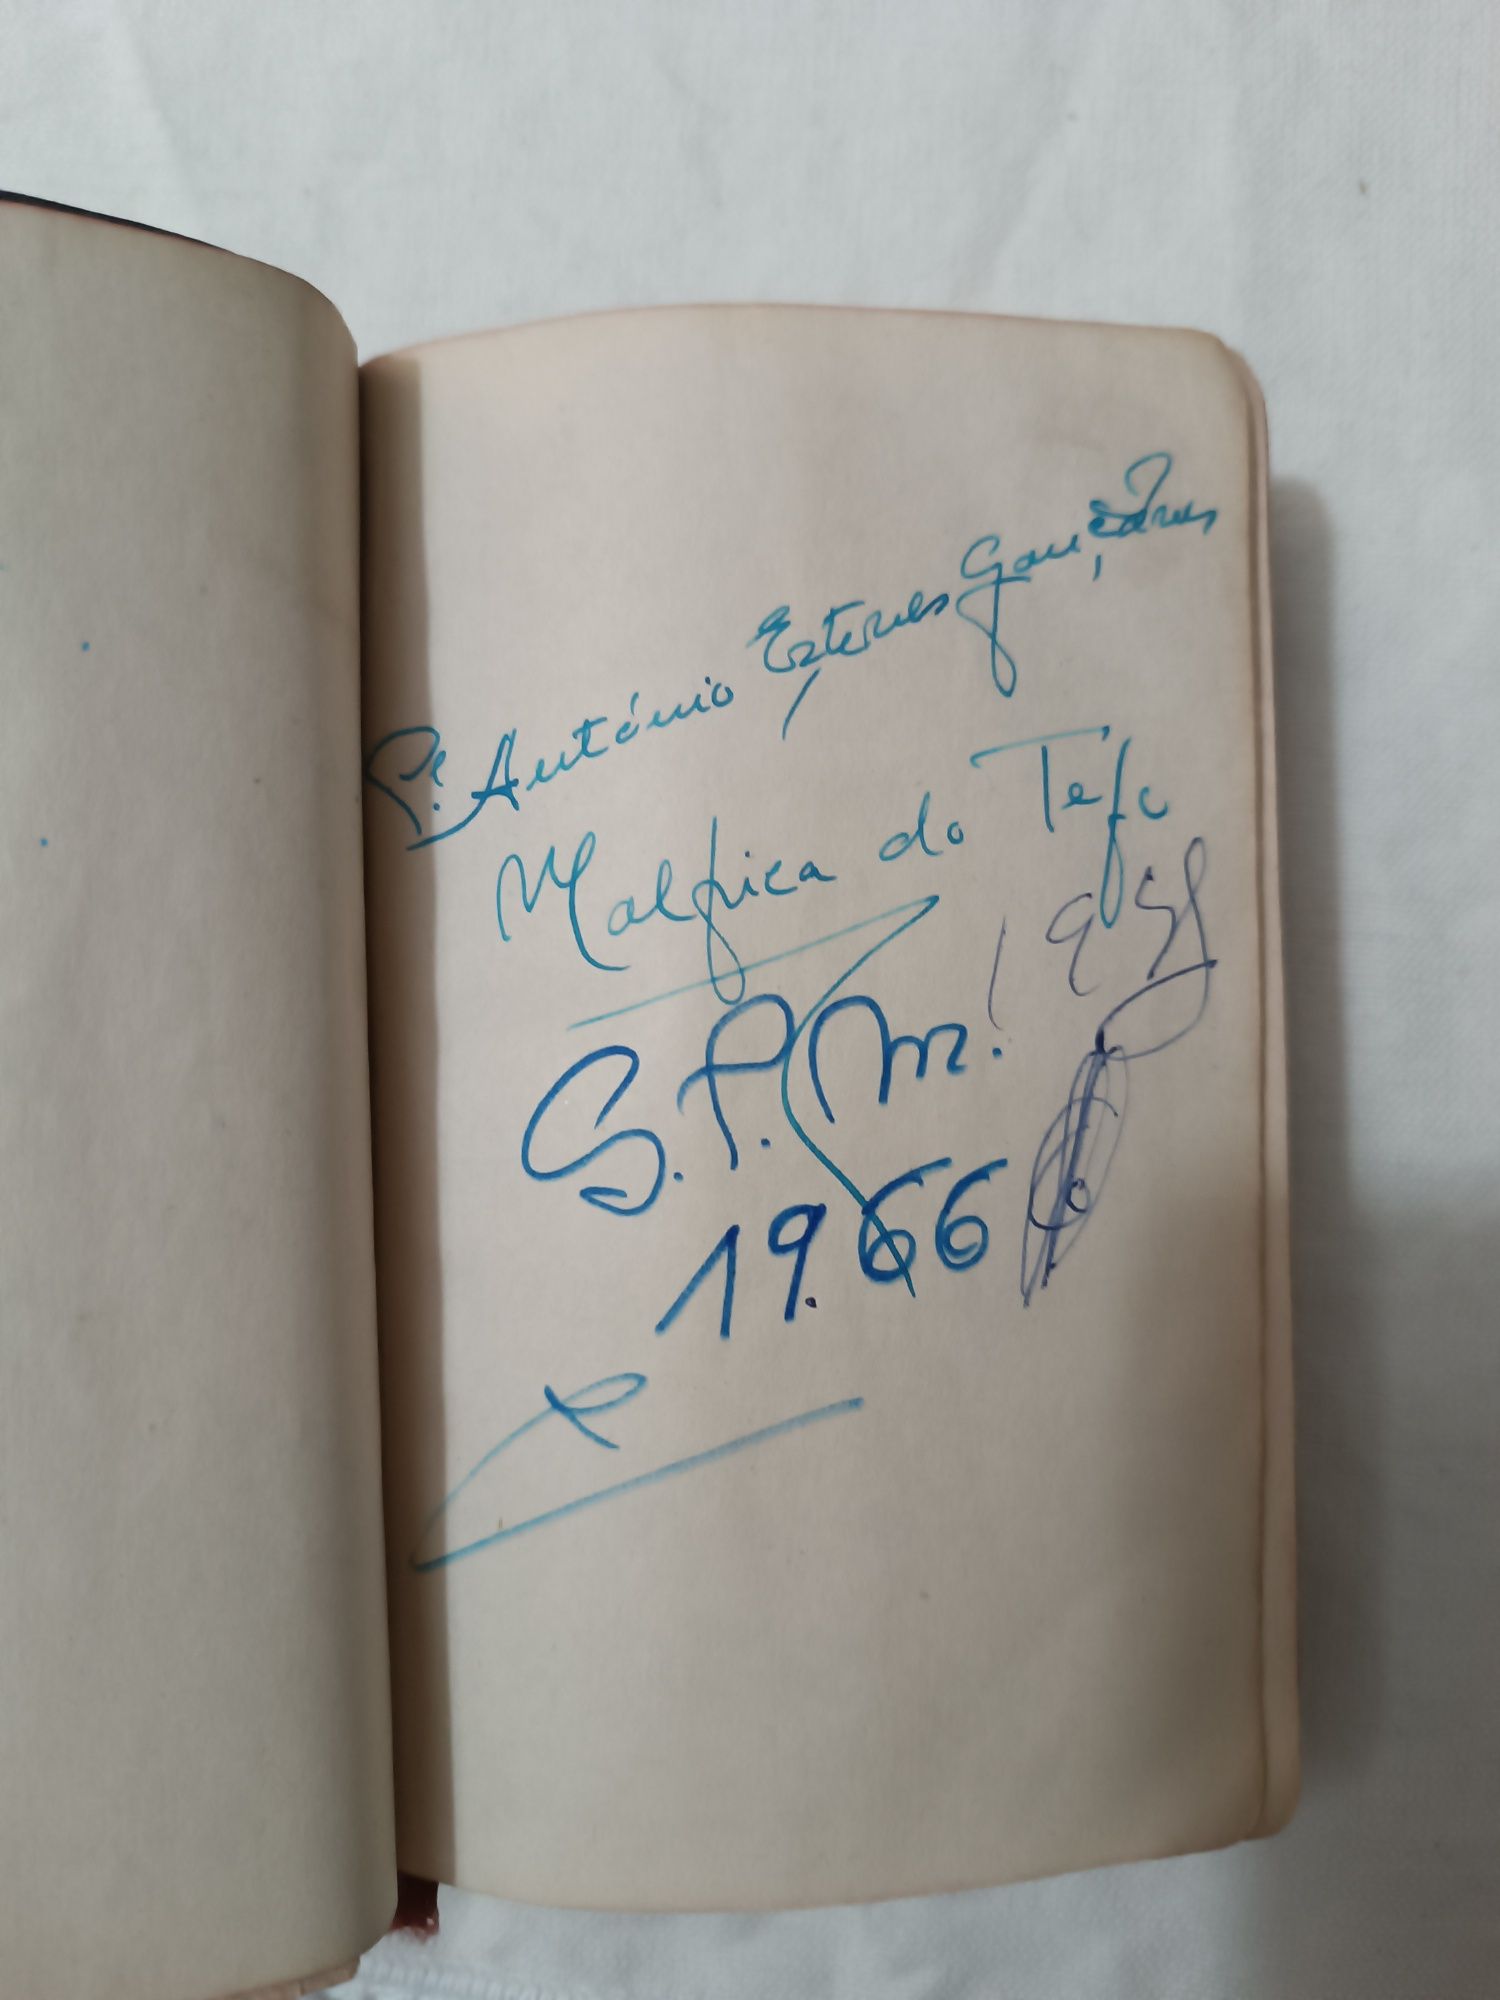 P.e António Esteves Gonçalves
Malpica do Tejo
S.P.M.
1966